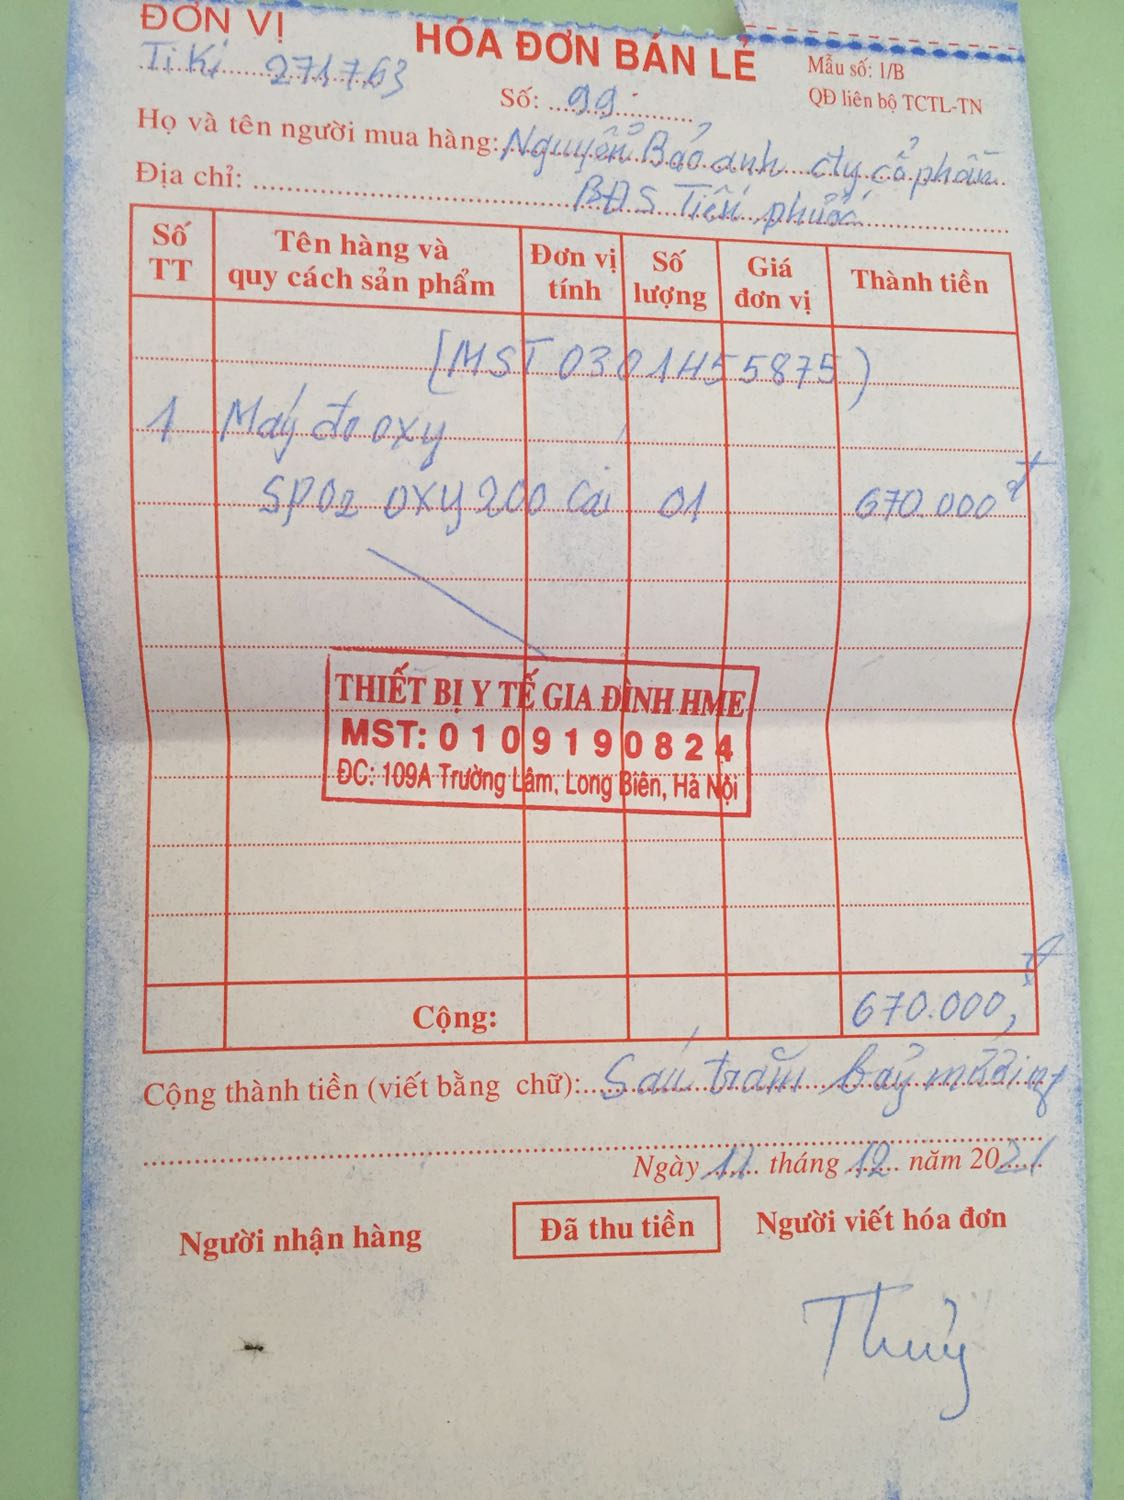 ĐƠN VỊ
HÓA ĐƠN BÁN LẺ
Mẫu số: 1/B
Ti Ki 271763
Số: 99
QĐ liên bộ TCTL-TN
Họ và tên người mua hàng: Nguyễn Bảo anh cty cổ phần
Địa chỉ: BĐS Tiến phước
Số TT
Tên hàng và quy cách sản phẩm
Đơn vị tính
Số lượng
Giá đơn vị
Thành tiền
(MST 0301455875)
1 Máy đo oxy
SPO2 OXY 200 Cái 01 670.000đ
THIẾT BỊ Y TẾ GIA ĐÌNH HME
MST: 0109190824
ĐC: 109A Trường Lâm, Long Biên, Hà Nội
Cộng: 670.000,đ
Cộng thành tiền (viết bằng chữ): Sáu trăm bảy mươi ng
Ngày 11 tháng 12 năm 2021
Người nhận hàng
Đã thu tiền
Người viết hóa đơn
Thuỷ